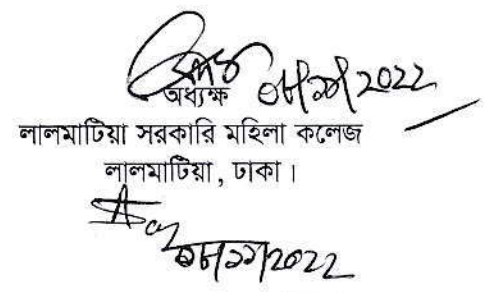 ০৮/১১/2022
অধ্যক্ষ
লালমাটিয়া সরকারি মহিলা কলেজ
লালমাটিয়া, ঢাকা।
০৮/১১/2022